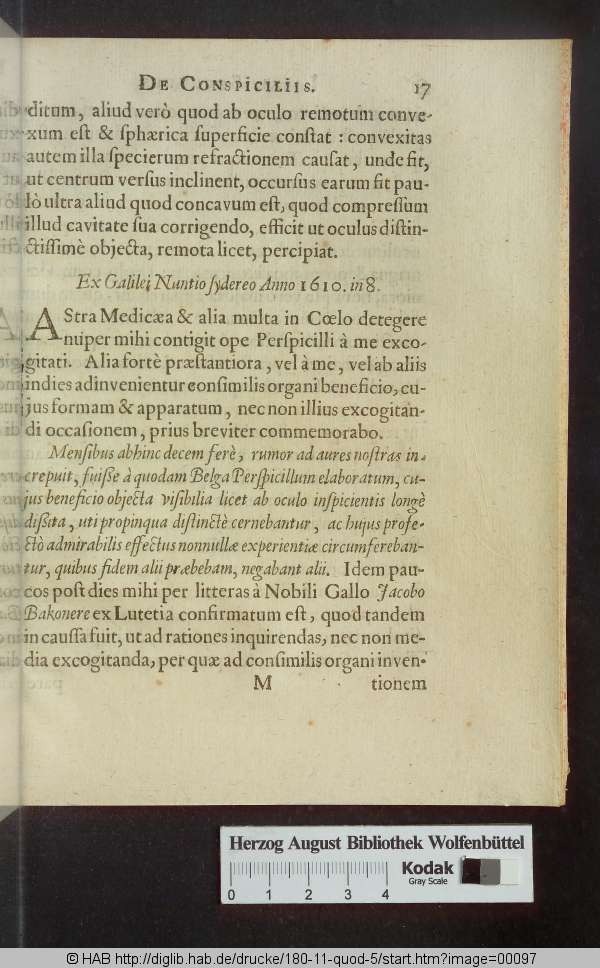 DE CONSPICILIIS. 17
ditum, aliud verò quod ab oculo remotum conve-
xum est & sphærica superficie constat : convexitas
autem illa specierum refractionem causat, unde fit,
ut centrum versus inclinent, occursus earum fit pau-
lò ultra aliud quod concavum est, quod compressum
illud cavitate sua corrigendo, efficit ut oculus distin-
ctissimè objecta, remota licet, percipiat.
Ex Galilei Nuntio sydereo Anno 1610. in 8.
AStra Medicæa & alia multa in Cœlo detegere
nuper mihi contigit ope Perspicilli à me exco-
gitati. Alia fortè præstantiora, vel à me, vel ab aliis
indies adinvenientur consimilis organi beneficio, cu-
jus formam & apparatum, nec non illius excogitan-
di occasionem, prius breviter commemorabo.
Mensibus abhinc decem ferè, rumor ad aures nostras in-
crepuit, fuisse à quodam Belga Perspicillum elaboratum, cu-
jus beneficio objecta visibilia licet ab oculo inspicientis longè
dissita, uti propinqua distinctè cernebantur, ac hujus profe-
ctò admirabilis effectus nonnullæ experientiæ circumfereban-
tur, quibus fidem alii præbebam, negabant alii. Idem pau-
cos post dies mihi per litteras à Nobili Gallo Jacobo
Bakonere ex Lutetia confirmatum est, quod tandem
in caussa fuit, ut ad rationes inquirendas, nec non me-
dia excogitanda, per quæ ad consimilis organi inven-
M tionem
Herzog August Bibliothek Wolfenbüttel
Kodak
Gray Scale
0 1 2 3 4
© HAB http://diglib.hab.de/drucke/180-11-quod-5/start.htm?image=00097